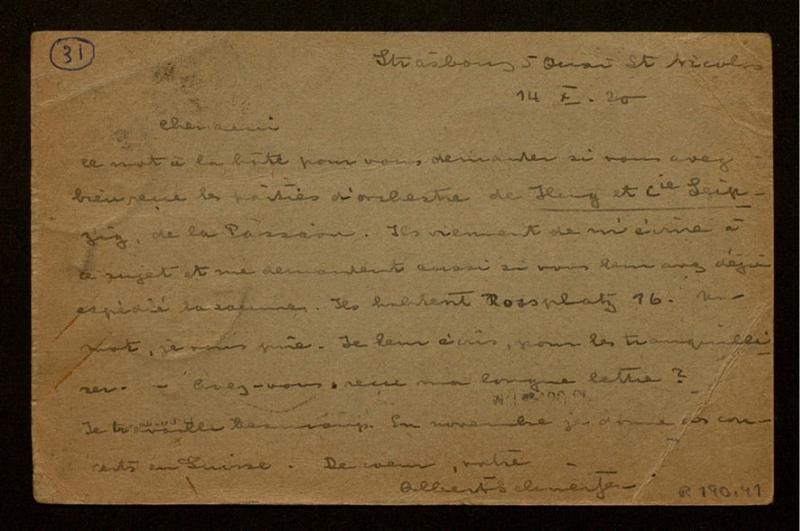 31
Strasbourg 5 Quai St Nicolas
14 X. 20
Cher ami
Ce mot à la hâte pour vous demander si vous avez
bien reçu les parties d'orchestre de Hug et Cie Leip-
zig, de la Passion. Ils viennent de m'écrire à
ce sujet et me demandent aussi si vous leur avez déjà
expédié la somme. Ils habitent Rossplatz 16. Un
mot, je vous prie. Je leur écris, pour les tranquilli
ser. - Avez-vous reçu ma longue lettre?
Je travaille beaucoup. En novembre je donne des con-
certs en Suisse. De coeur, votre
Albert Schweitzer
R 190.41